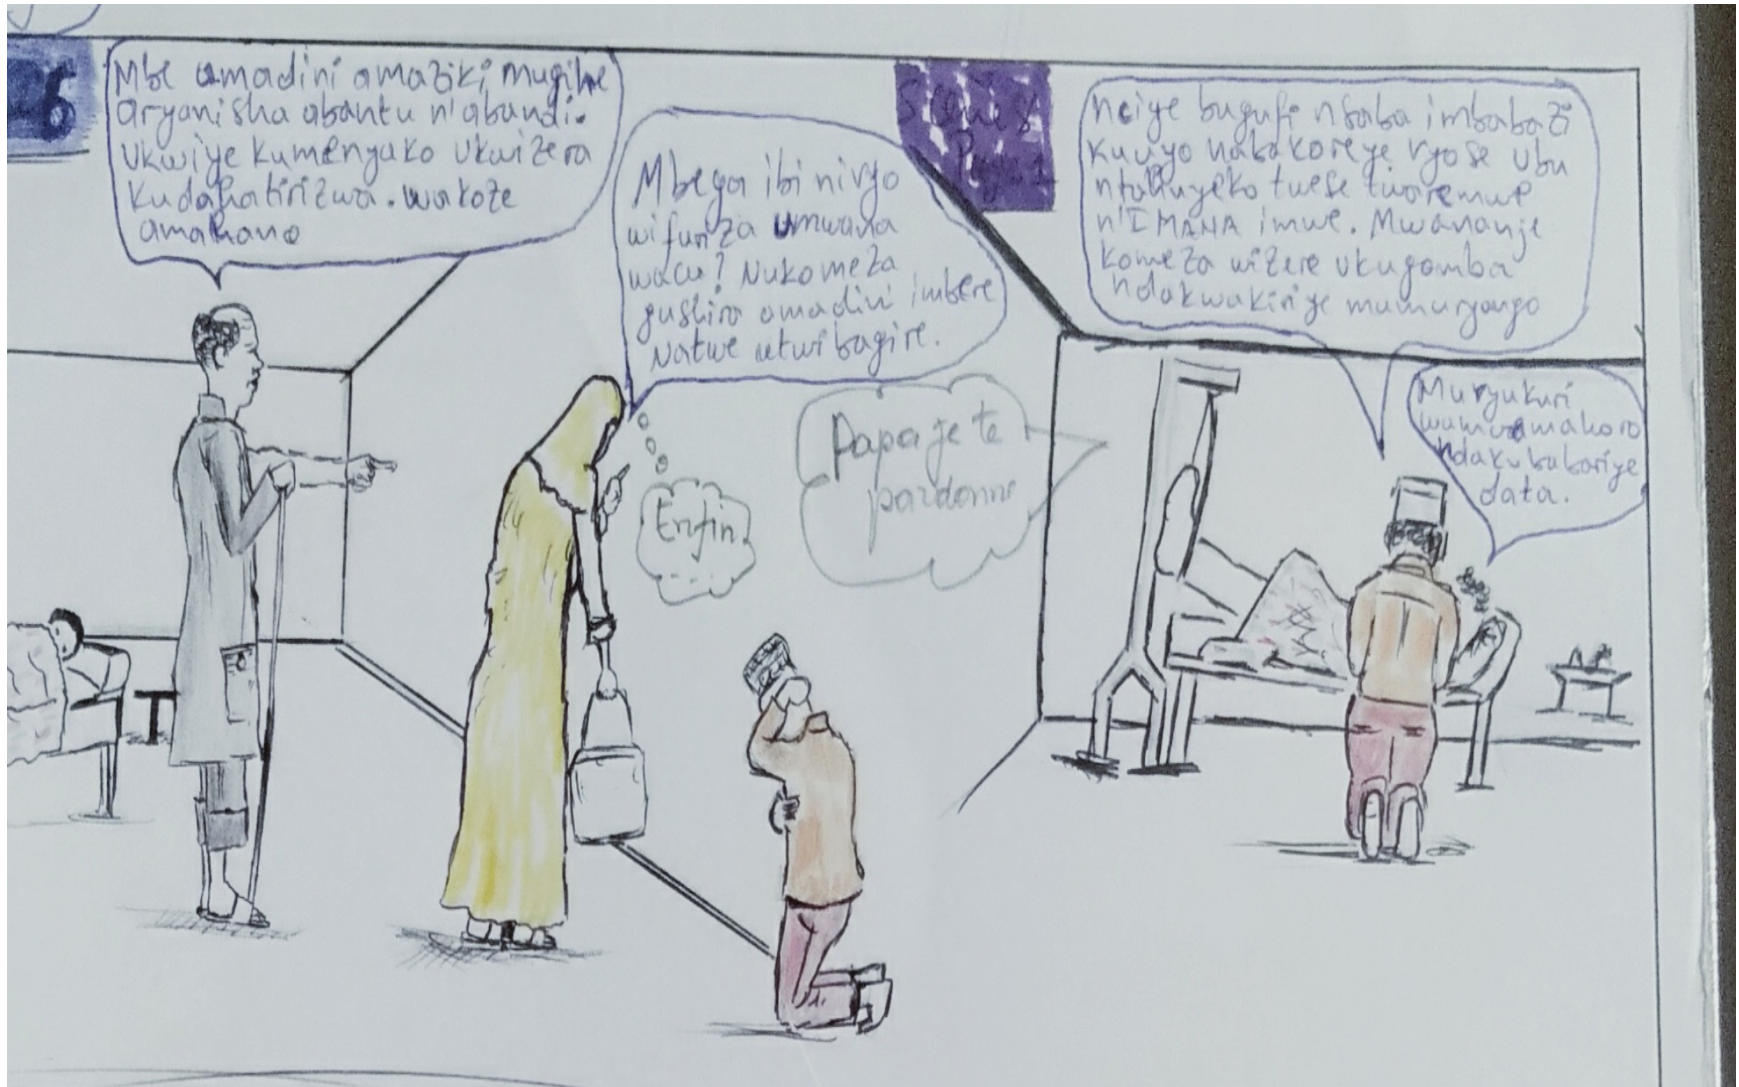 6
Mbe amadini amaziki mugihe
aryanisha abantu n'abandi.
ukwiye kumenyako ukwizera
kudahatirizwa. wakoze
amahano
Mbega ibi nivyo
wifunza umwana
wacu? Nukomeza
gushira amadini imbere
natwe utwibagire.
Enfin
Papa je te
pardonne
Nciye bugufi nsaba imbabazi
kuvyo nabakoreye vyose ubu
ntahuyeko twese twaremwe
n'IMANA imwe. Mwananje
komeza wizere ukugomba
ndakwakiriye mumuryango
Muryukuri
wumvamahoro
ndakubabariye
data.